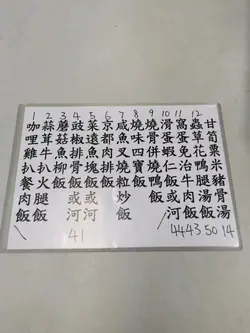 1 咖哩雞扒餐肉飯
2 蒜茸牛扒火腿飯
3 蘑菇魚柳飯
4 豉椒排骨飯或河
5 菜遠魚塊飯或河
6 京都肉排飯
7 咸魚叉燒粒炒飯
8 燒味四寶飯
9 燒骨併燒鴨飯
10 滑蛋蝦仁飯或河
11 窩蛋免治牛肉飯
12 蟲草花鴨腿湯飯
甘筍粟米豬骨湯
41
44 43 50 14